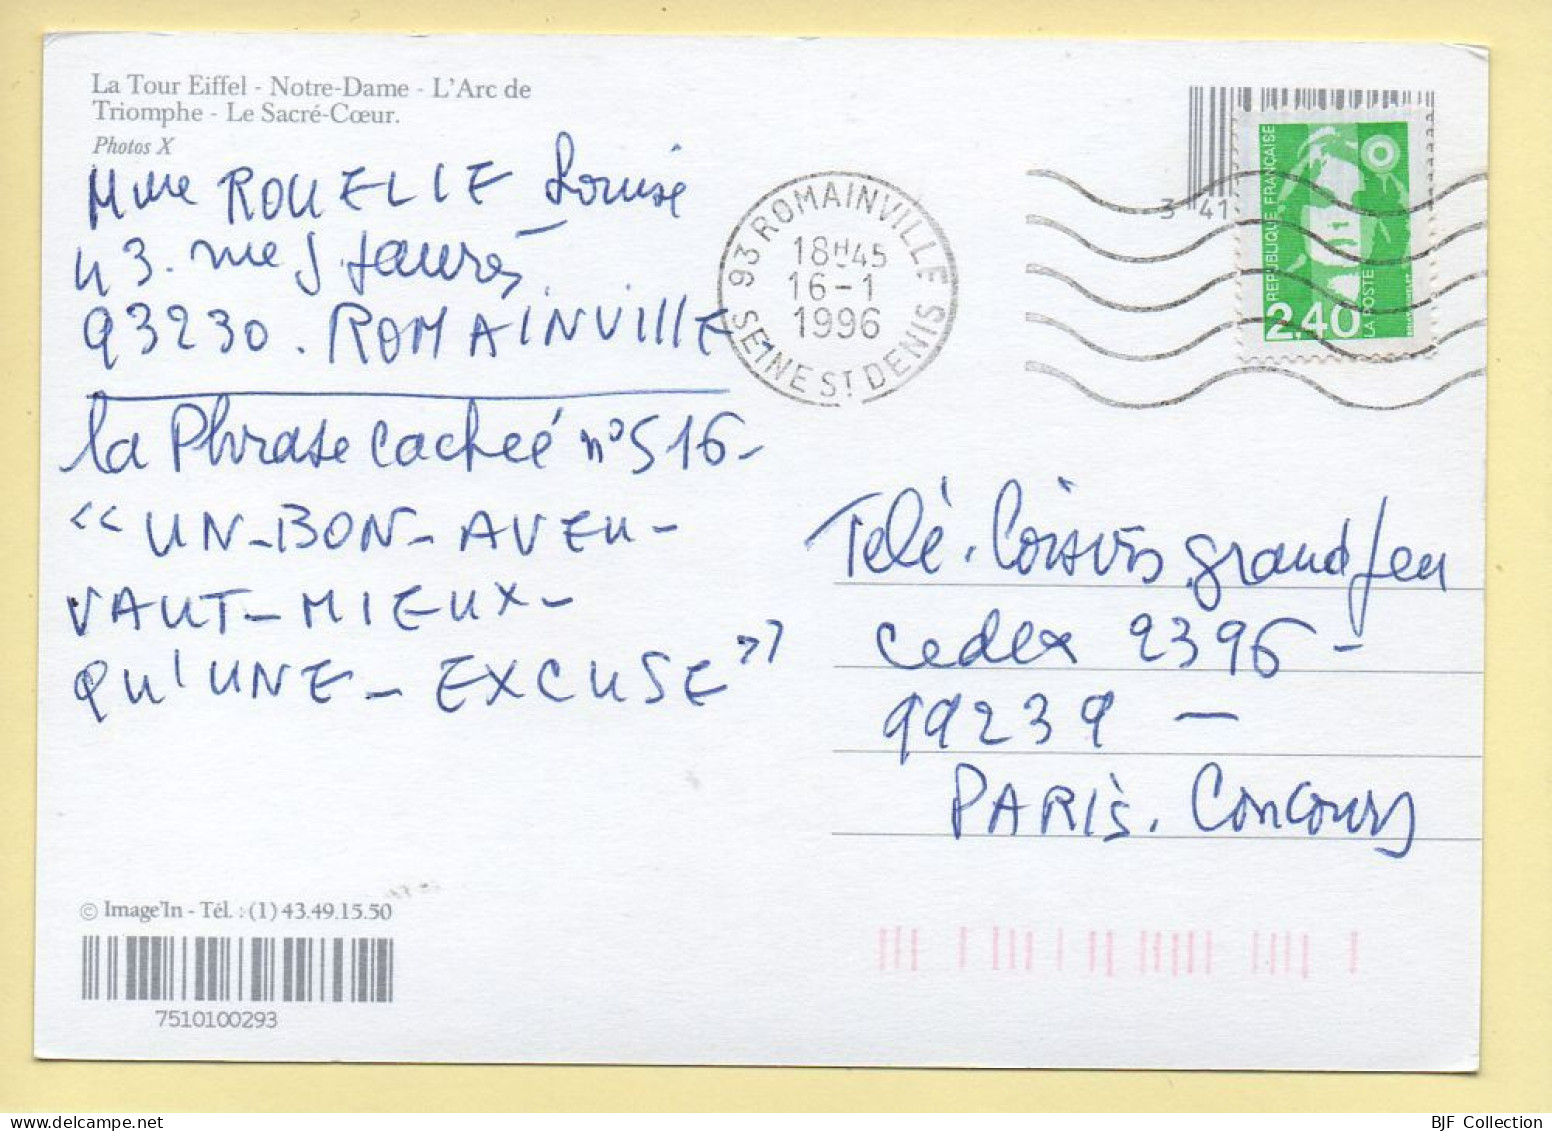 La Tour Eiffel - Notre-Dame - L'Arc de
Triomphe - Le Sacré-Cœur.
Photos X
Mme ROUELLE Louise
43. rue J Jaurès
93230. ROMAINVILLE
la Phrase cacheé n° 516 -
« UN - BON - AVEU -
VAUT - MIEUX -
QU'UNE - EXCUSE »
© Image'In - Tél. : (1) 43.49.15.50
7510100293
93 ROMAINVILLE
18H45
16-1
1996
SEINE ST DENIS
3 41
REPUBLIQUE FRANÇAISE
2,40
LA POSTE
Télé. Loisirs grand Jeu
cedex 2396 -
99239 -
PARIS. Concours
BJF Collection